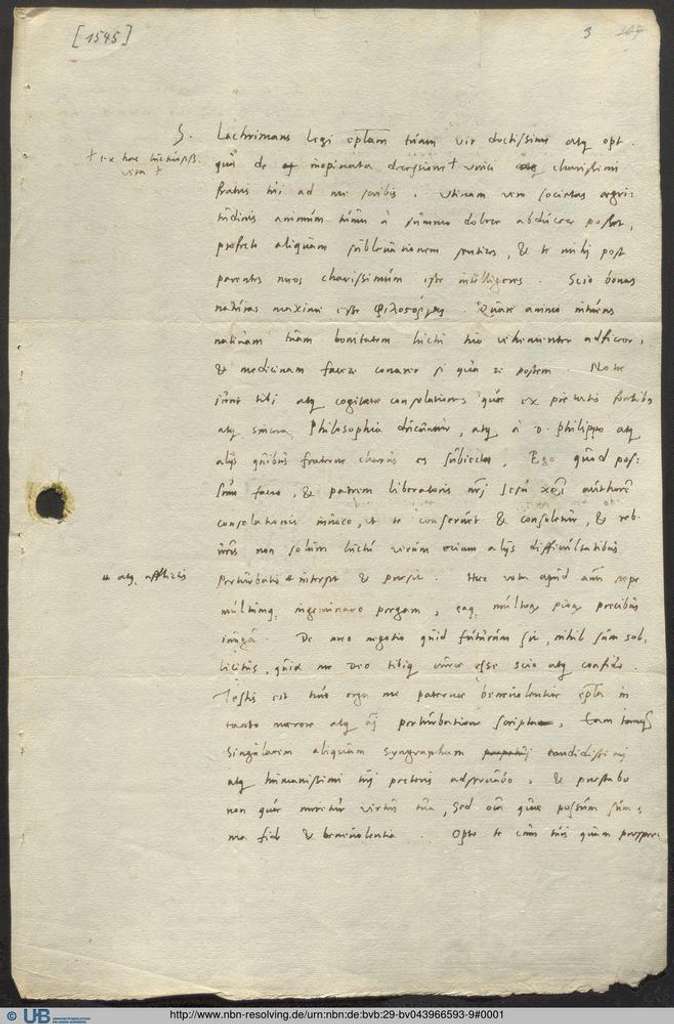 [1545]
3 207
S. Lachrimans legi epl̃am tuam vir doctissime atq opt.
† ex hac miseriarũ vita †
quã de inopinata decessione † unici charissimi
fratris tui ad me scribis. Utinam vero societas aegri-
tudinis animum tuum à summo dolore abducere posset,
profecto aliquam sublevationem sentires, & te mihi post
parentes meos charissimum esse intelligeres. Scio bonas
naturas maxime esse φιλοστόργους. Quare animo intuens
naturam tuam bonitatem luctu tuo vehementer adficior,
& medicinam facere conarer si qua in re possem. Notae
sunt tibi atq cogitatae consolationes quae ex pietatis fontibus
atq sincera Philosophia ducuntur, atq à D. Philippo atq
alijs quibus fraterne charus es subiectae. Ego quod pos-
sum facio, & patrem liberatoris nrj̃ Jesu χρ̃j authorẽ
consolationis invoco, ut te conservet & consoletur, & reb.
vr̃is non solum luctu verum etiam alijs difficultatibus
⁎ atq afflictis
perturbatis ⁎ intersit & prosit. Haec vota apud aũ saepe
multumq ingeminare pergam, eaq multorũ piorũ precibus
iungã. De meo negotio quid futurum sit, nihil sum sol-
licitus, quia me Deo tibiq curae esse scio atq confido.
Testis est tuae erga me paternae benevolentiae epl̃a in
tanto moerore atq aj̃ perturbatione scripta. Eam tanq̃
singularem aliquam syngrapham candidissimj
atq humanissimi tuj pectoris adservabo, & praestabo
non quae meretur virtus tua, sed oĩa quae possum sum-
ma fide & benevolentia. Opto te cum tuis quam prosper-
UB
http://www.nbn-resolving.de/urn:nbn:de:bvb:29-bv043966593-9#0001